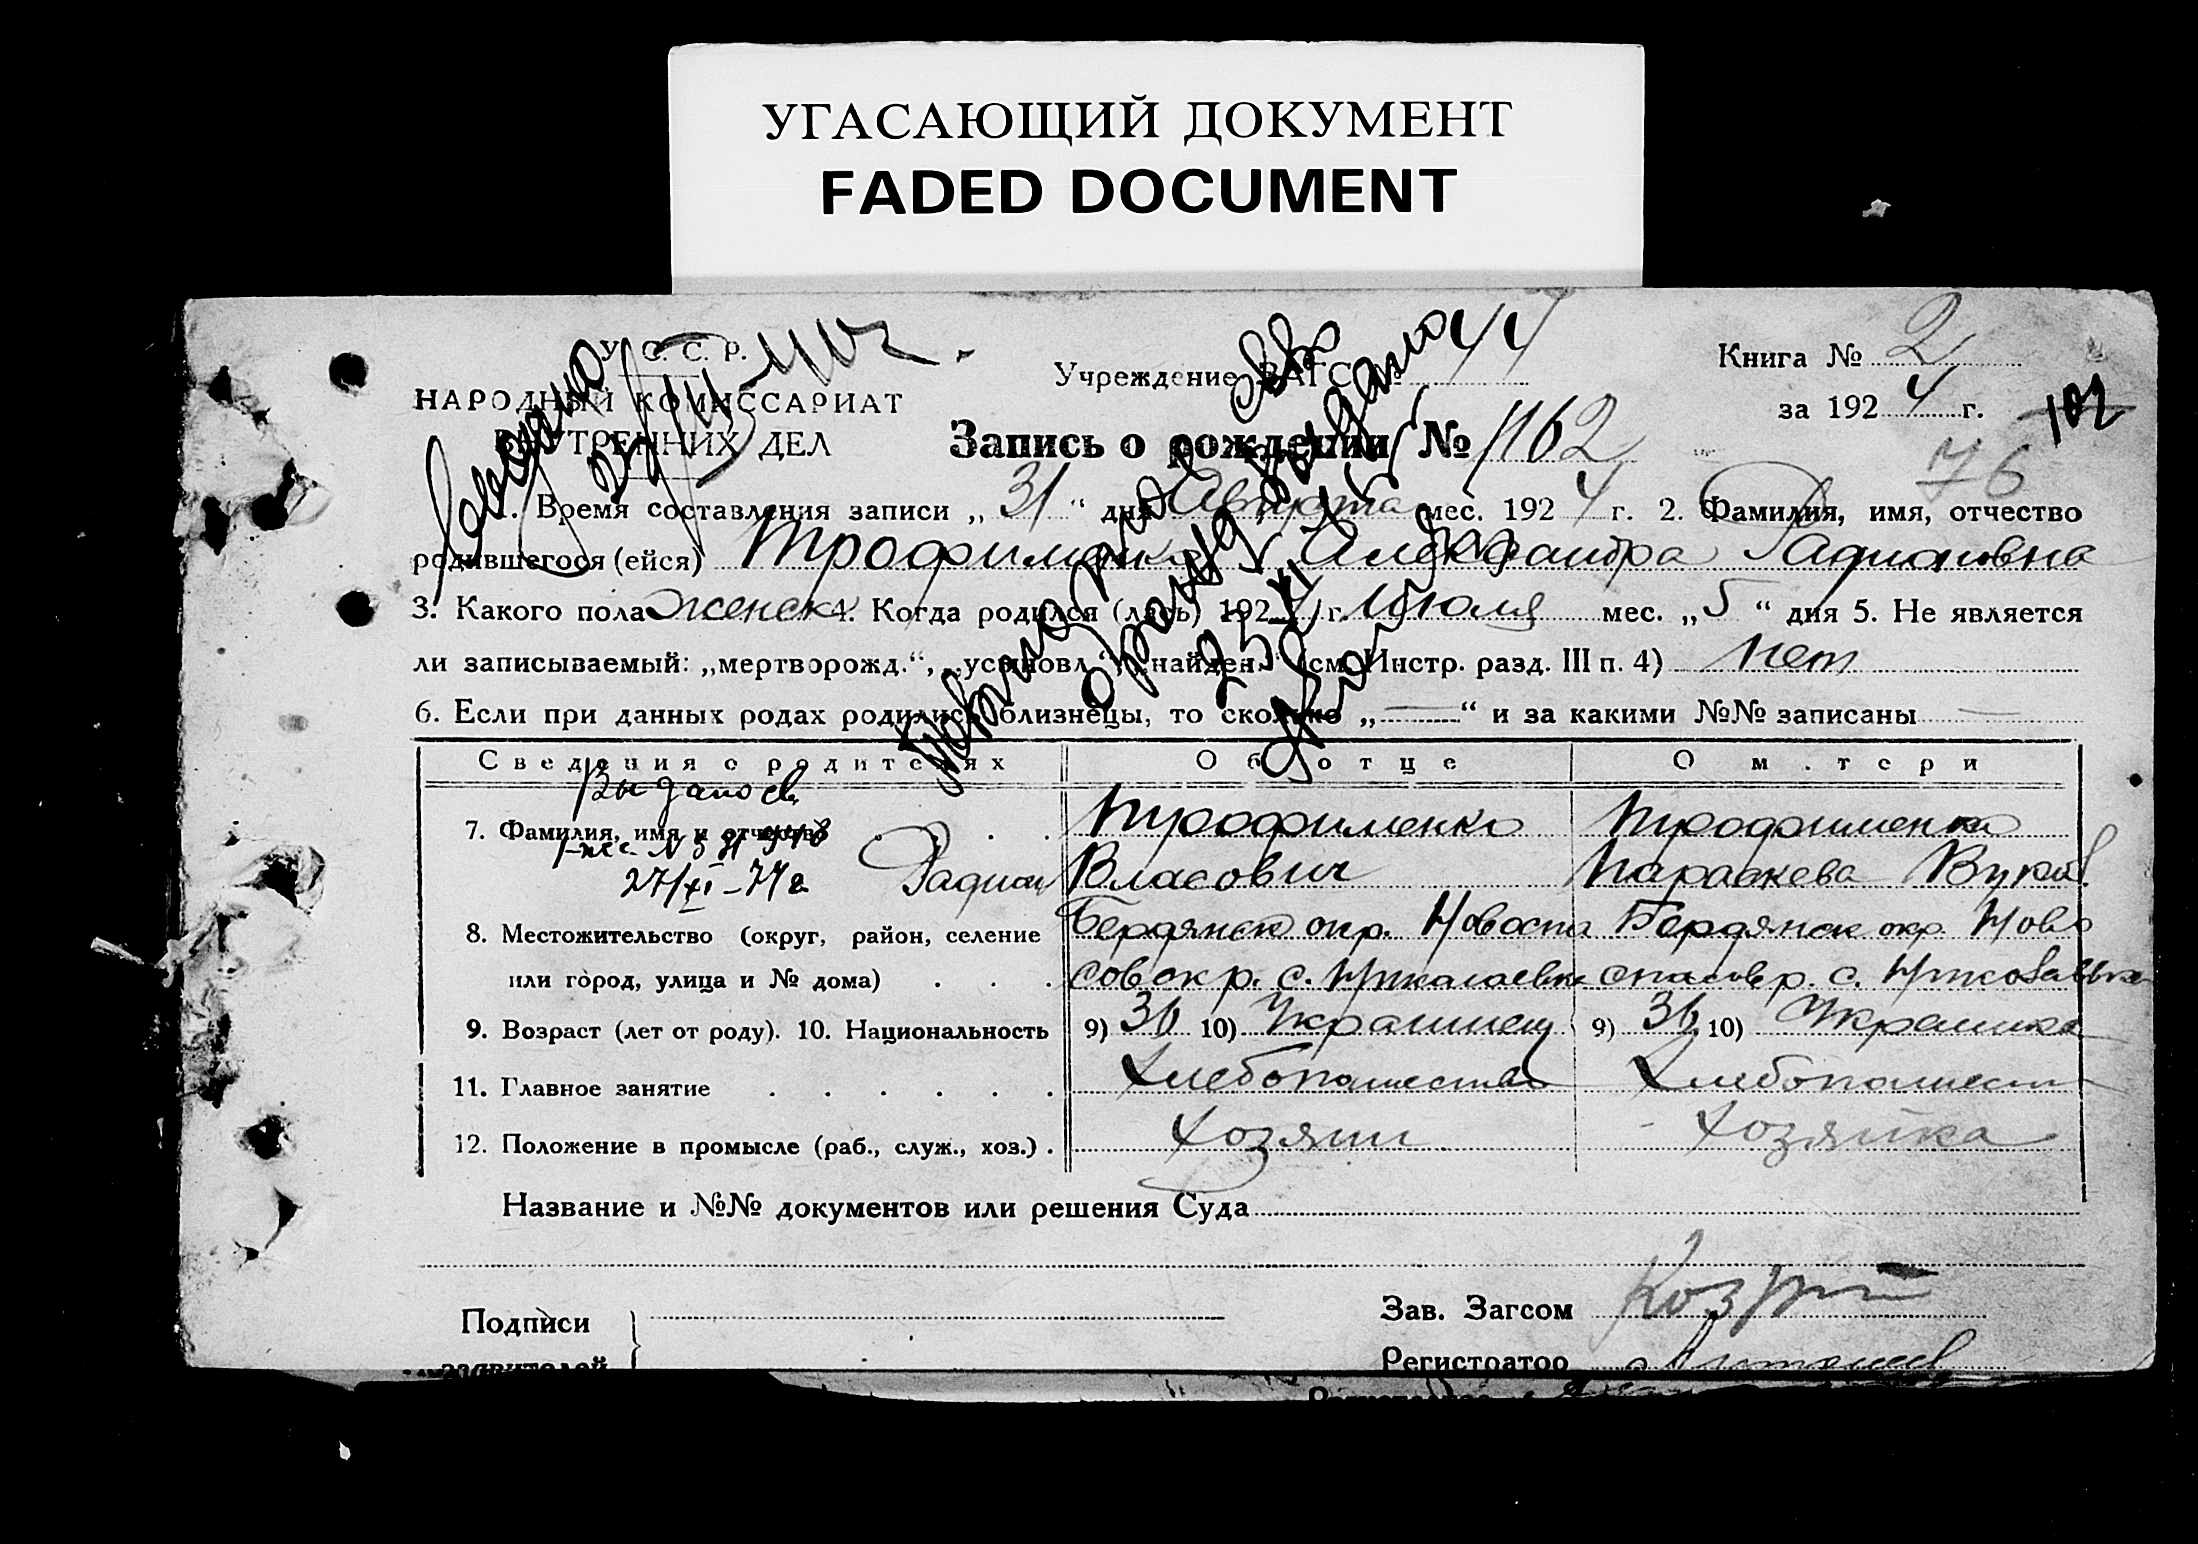 УГАСАЮЩИЙ ДОКУМЕНТ
FADED DOCUMENT
У. С. С. Р.
НАРОДНЫЙ КОМИССАРИАТ
ВНУТРЕННИХ ДЕЛ
Учреждение ЗАГС №
Книга № 2
за 1924 г.
102
76
Запись о рождении № 162
1. Время составления записи „31“ дня Августа мес. 1924 г. 2. Фамилия, имя, отчество
родившегося (ейся) Трофименко Александра Радионовна
3. Какого пола женск 4. Когда родился (лась) 1924 г. Июля мес. „5“ дня 5. Не является
ли записываемый: „мертворожд.“, „усыновл.“, „найден.“ (см. Инстр. разд. III п. 4) Нет
6. Если при данных родах родились близнецы, то сколько „—“ и за какими №№ записаны —
Сведения о родителях Об отце О матери
Выдано св
7. Фамилия, имя и отчество . . . . Трофименко Трофименко
27/XI-74г Радион Власович Параскева Вуков.
8. Местожительство (округ, район, селение Бердянск окр. Новоспа Бердянск окр. Ново
или город, улица и № дома) . . . совск р. с. Николаевка спасов р. с. Николаевка
9. Возраст (лет от роду). 10. Национальность 9) 36 10) Украинец 9) 36 10) Украинка
11. Главное занятие . . . . . . Хлебопашество Хлебопашест
12. Положение в промысле (раб., служ., хоз.) . Хозяин Хозяйка
Название и №№ документов или решения Суда
Подписи
заявителей
Зав. Загсом
Регистратор